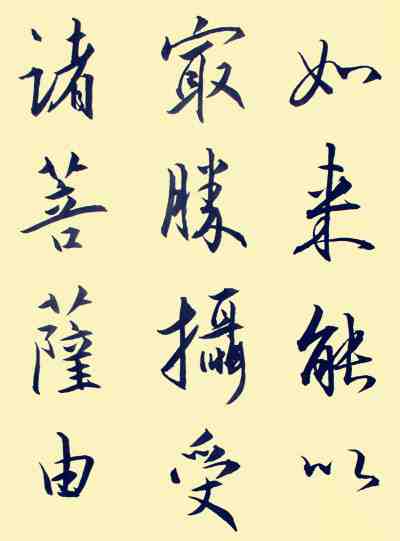 如来能以
最勝攝受
诸菩薩由